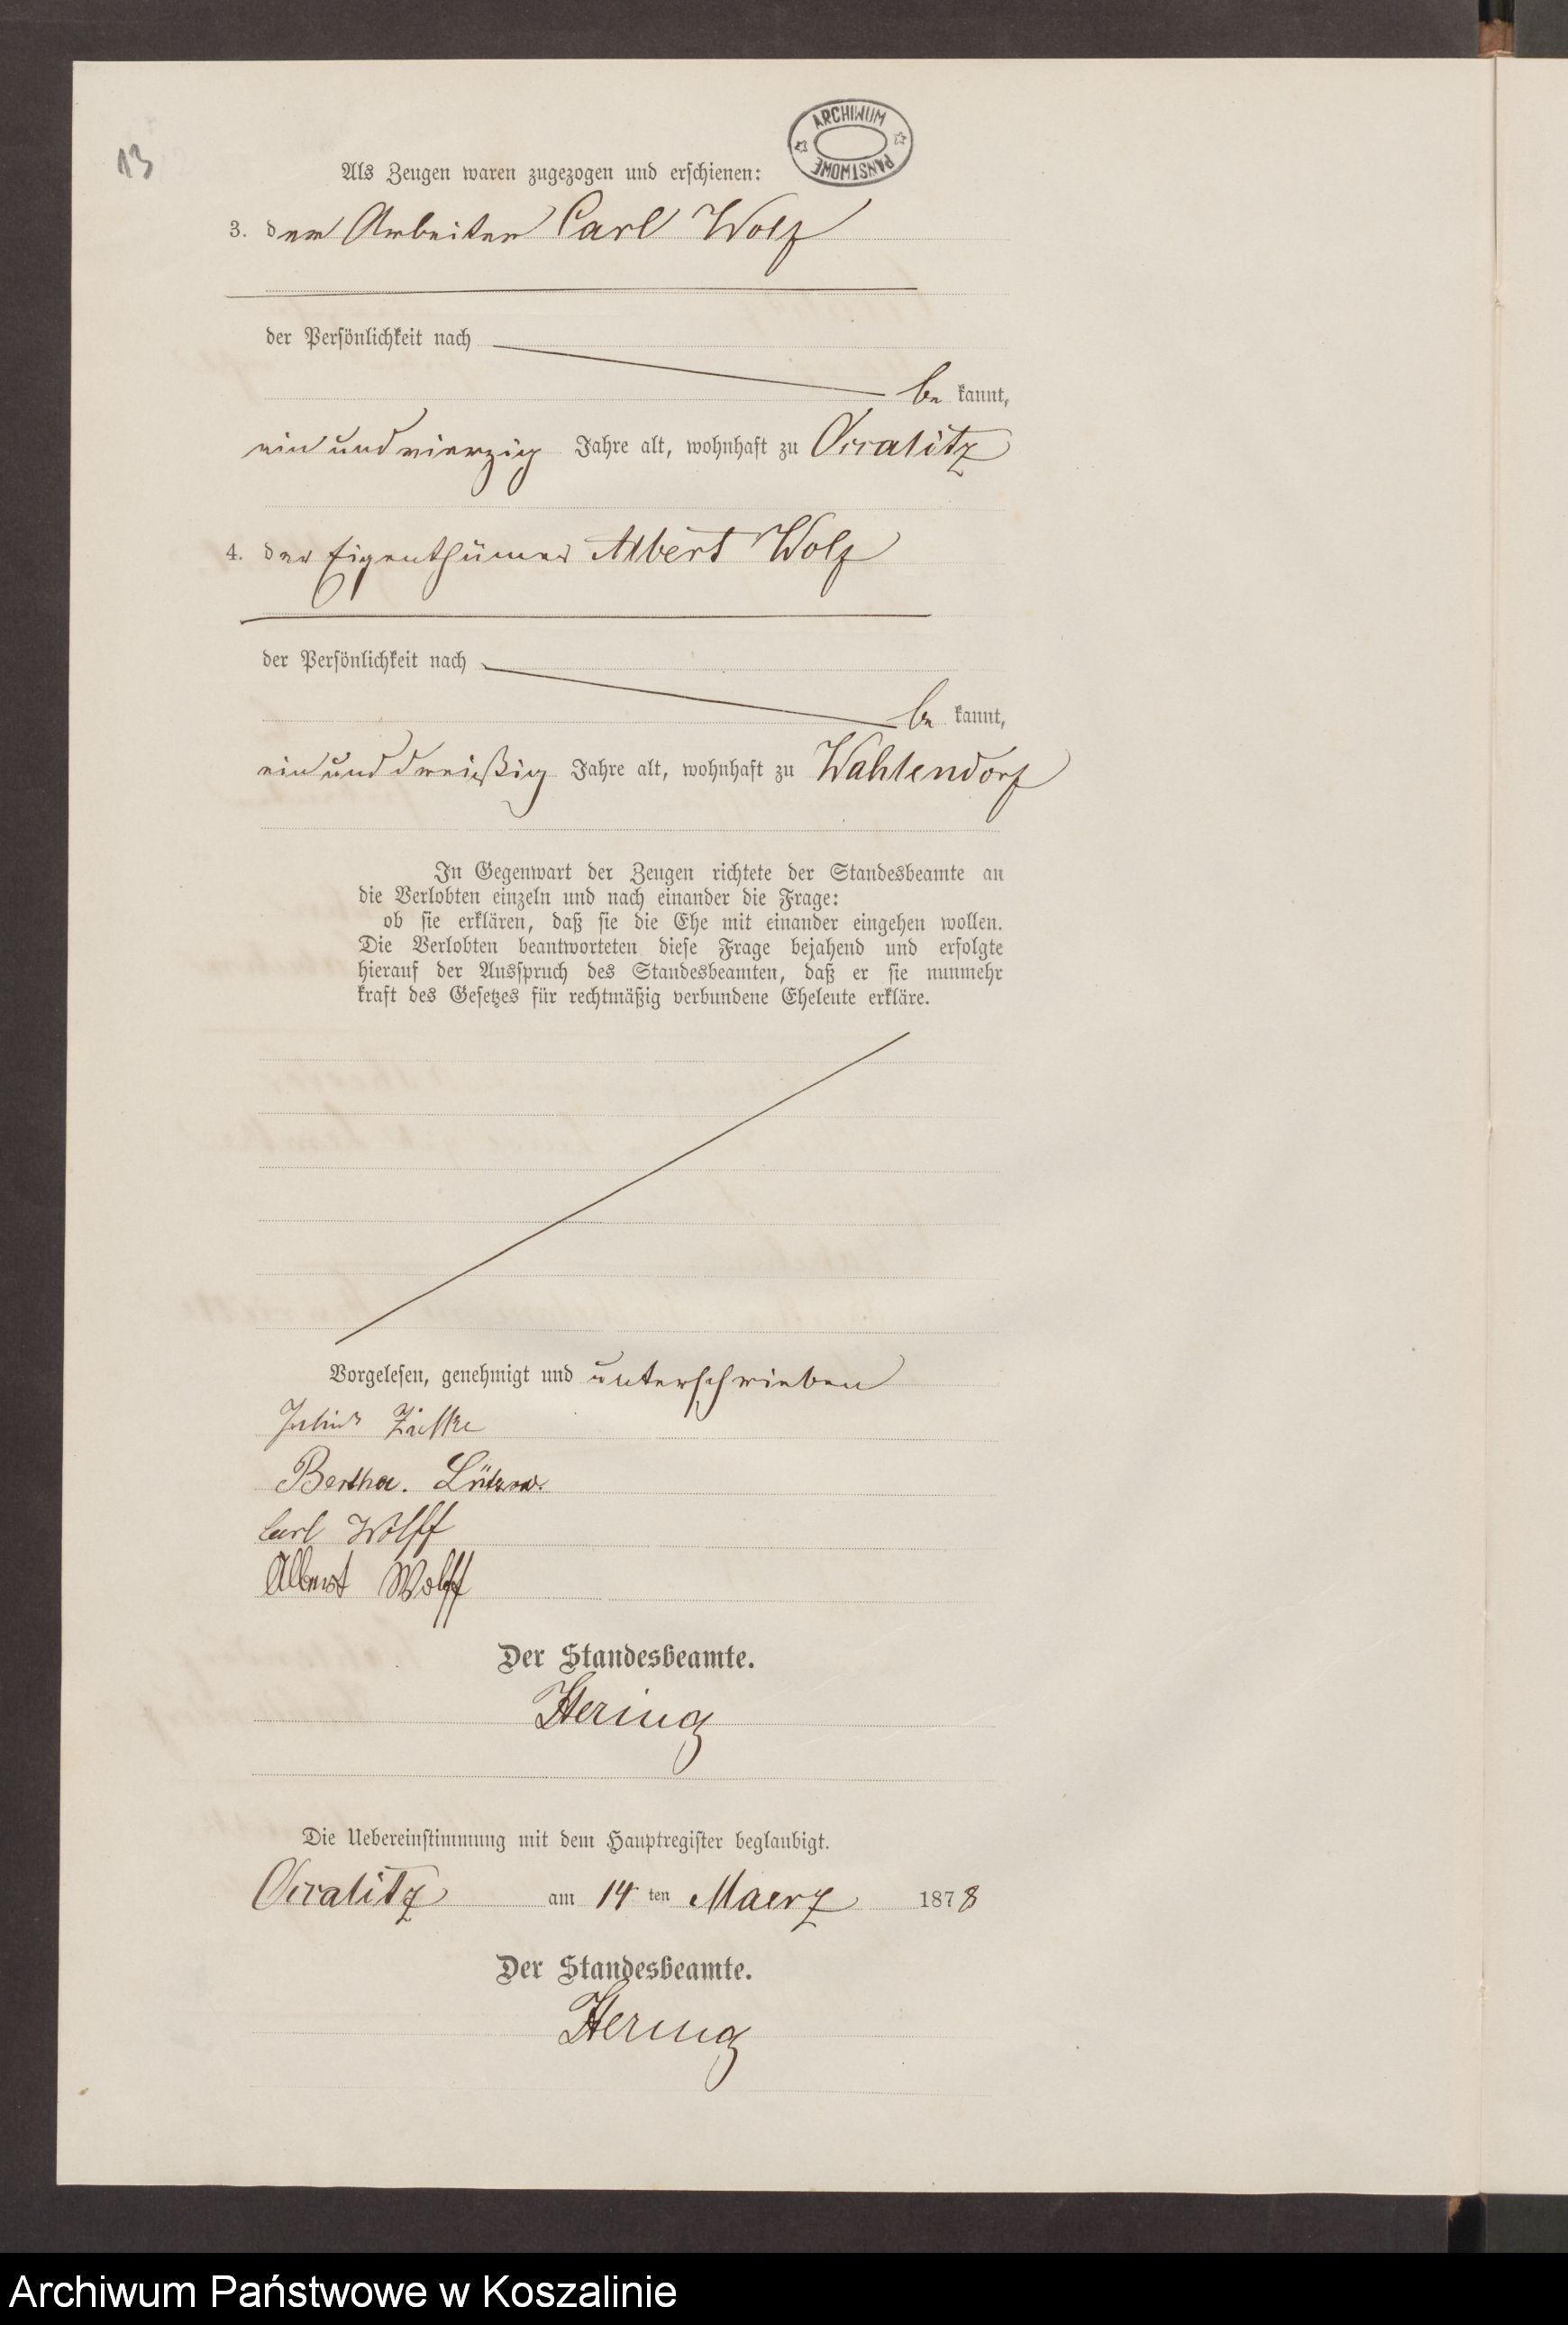 13
ARCHIWUM
PAŃSTWOWE
Als Zeugen waren zugezogen und erschienen:
3. der Arbeiter Carl Wolf
der Persönlichkeit nach
be kannt,
ein und vierzig Jahre alt, wohnhaft zu Occalitz
4. der Eigenthümer Albert Wolf
der Persönlichkeit nach
be kannt,
ein und dreißig Jahre alt, wohnhaft zu Wahlendorf
In Gegenwart der Zeugen richtete der Standesbeamte an
die Verlobten einzeln und nach einander die Frage:
ob sie erklären, daß sie die Ehe mit einander eingehen wollen.
Die Verlobten beantworteten diese Frage bejahend und erfolgte
hierauf der Ausspruch des Standesbeamten, daß er sie nunmehr
kraft des Gesetzes für rechtmäßig verbundene Eheleute erkläre.
Vorgelesen, genehmigt und unterschrieben
Julius
Bertha. Lützow.
Carl Wolff
Albert Wolff
Der Standesbeamte.
Hering
Die Uebereinstimmung mit dem Hauptregister beglaubigt.
Occalitz am 14 ten Maerz 1878
Der Standesbeamte.
Hering
Archiwum Państwowe w Koszalinie